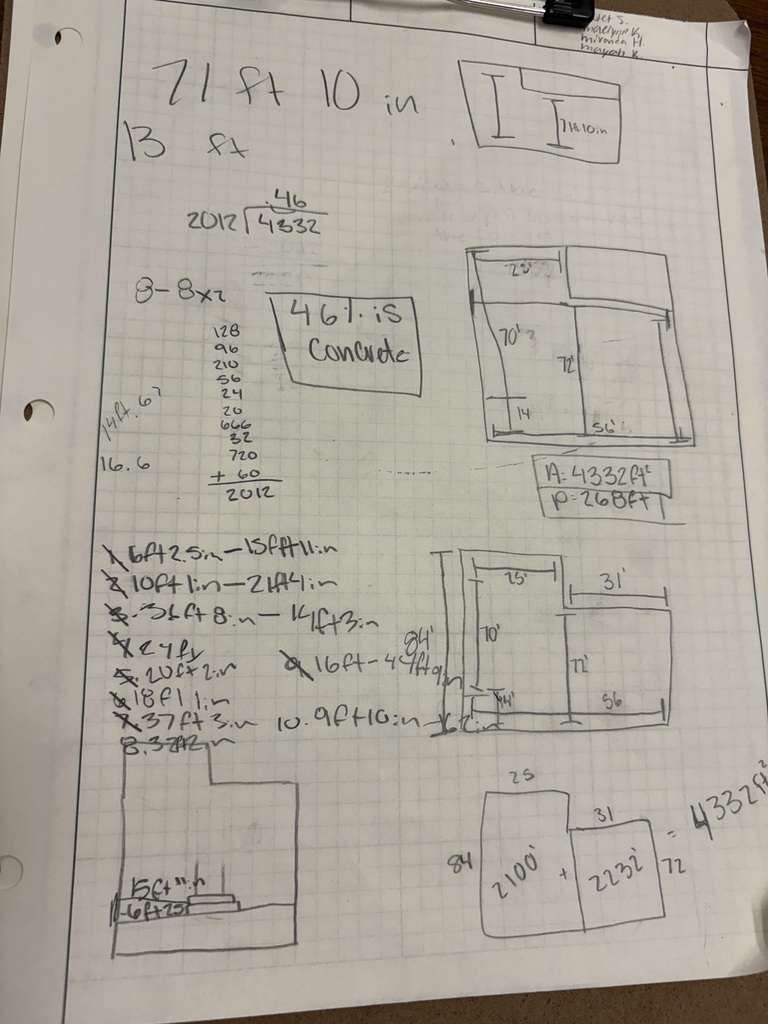 miranda H.
71 ft 10 in
13 ft
71ft 10in
.46
2012 4332
8-8x2
46% is
Concrete
128
96
210
56
24
20
666
32
720
+ 60
2012
14ft.67
16.6
25'
70'
72'
14
56'
A=4332ft²
P=268ft
1. 6ft2.5in-15ft11in
2. 10ft1in-21ft4in
3. 31ft8in-14ft3in
4. 24ft
5. 20ft2in
6. 18ft1in
7. 37ft3in
8. 37ft2in
9. 16ft-47ft9in
10. 9ft10in-
25'
31'
84'
70'
72'
14'
56
15ft"in
6ft25
25
31
84
2100' + 2232'
72
= 4332ft²